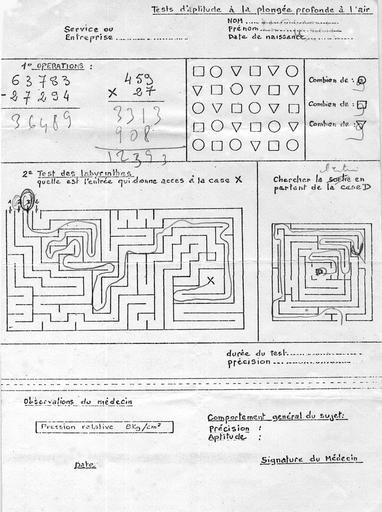 Tests d'aptitude à la plongée profonde à l'air
Service ou
Entreprise
NOM
Prénom
Date de naissance
1° OPERATIONS :
63783
- 27294
36489
459
x 27
3313
908
12393
Combien de :
Combien de :
Combien de :
2° Test des labyrinthes
quelle est l'entrée qui donne acces à la case X
X
Chercher la sortie en
partant de la case D
durée du test
précision
Observations du médecin
Pression relative 8Kg/cm²
Date
Comportement général du sujet:
Précision :
Aptitude :
Signature du Médecin